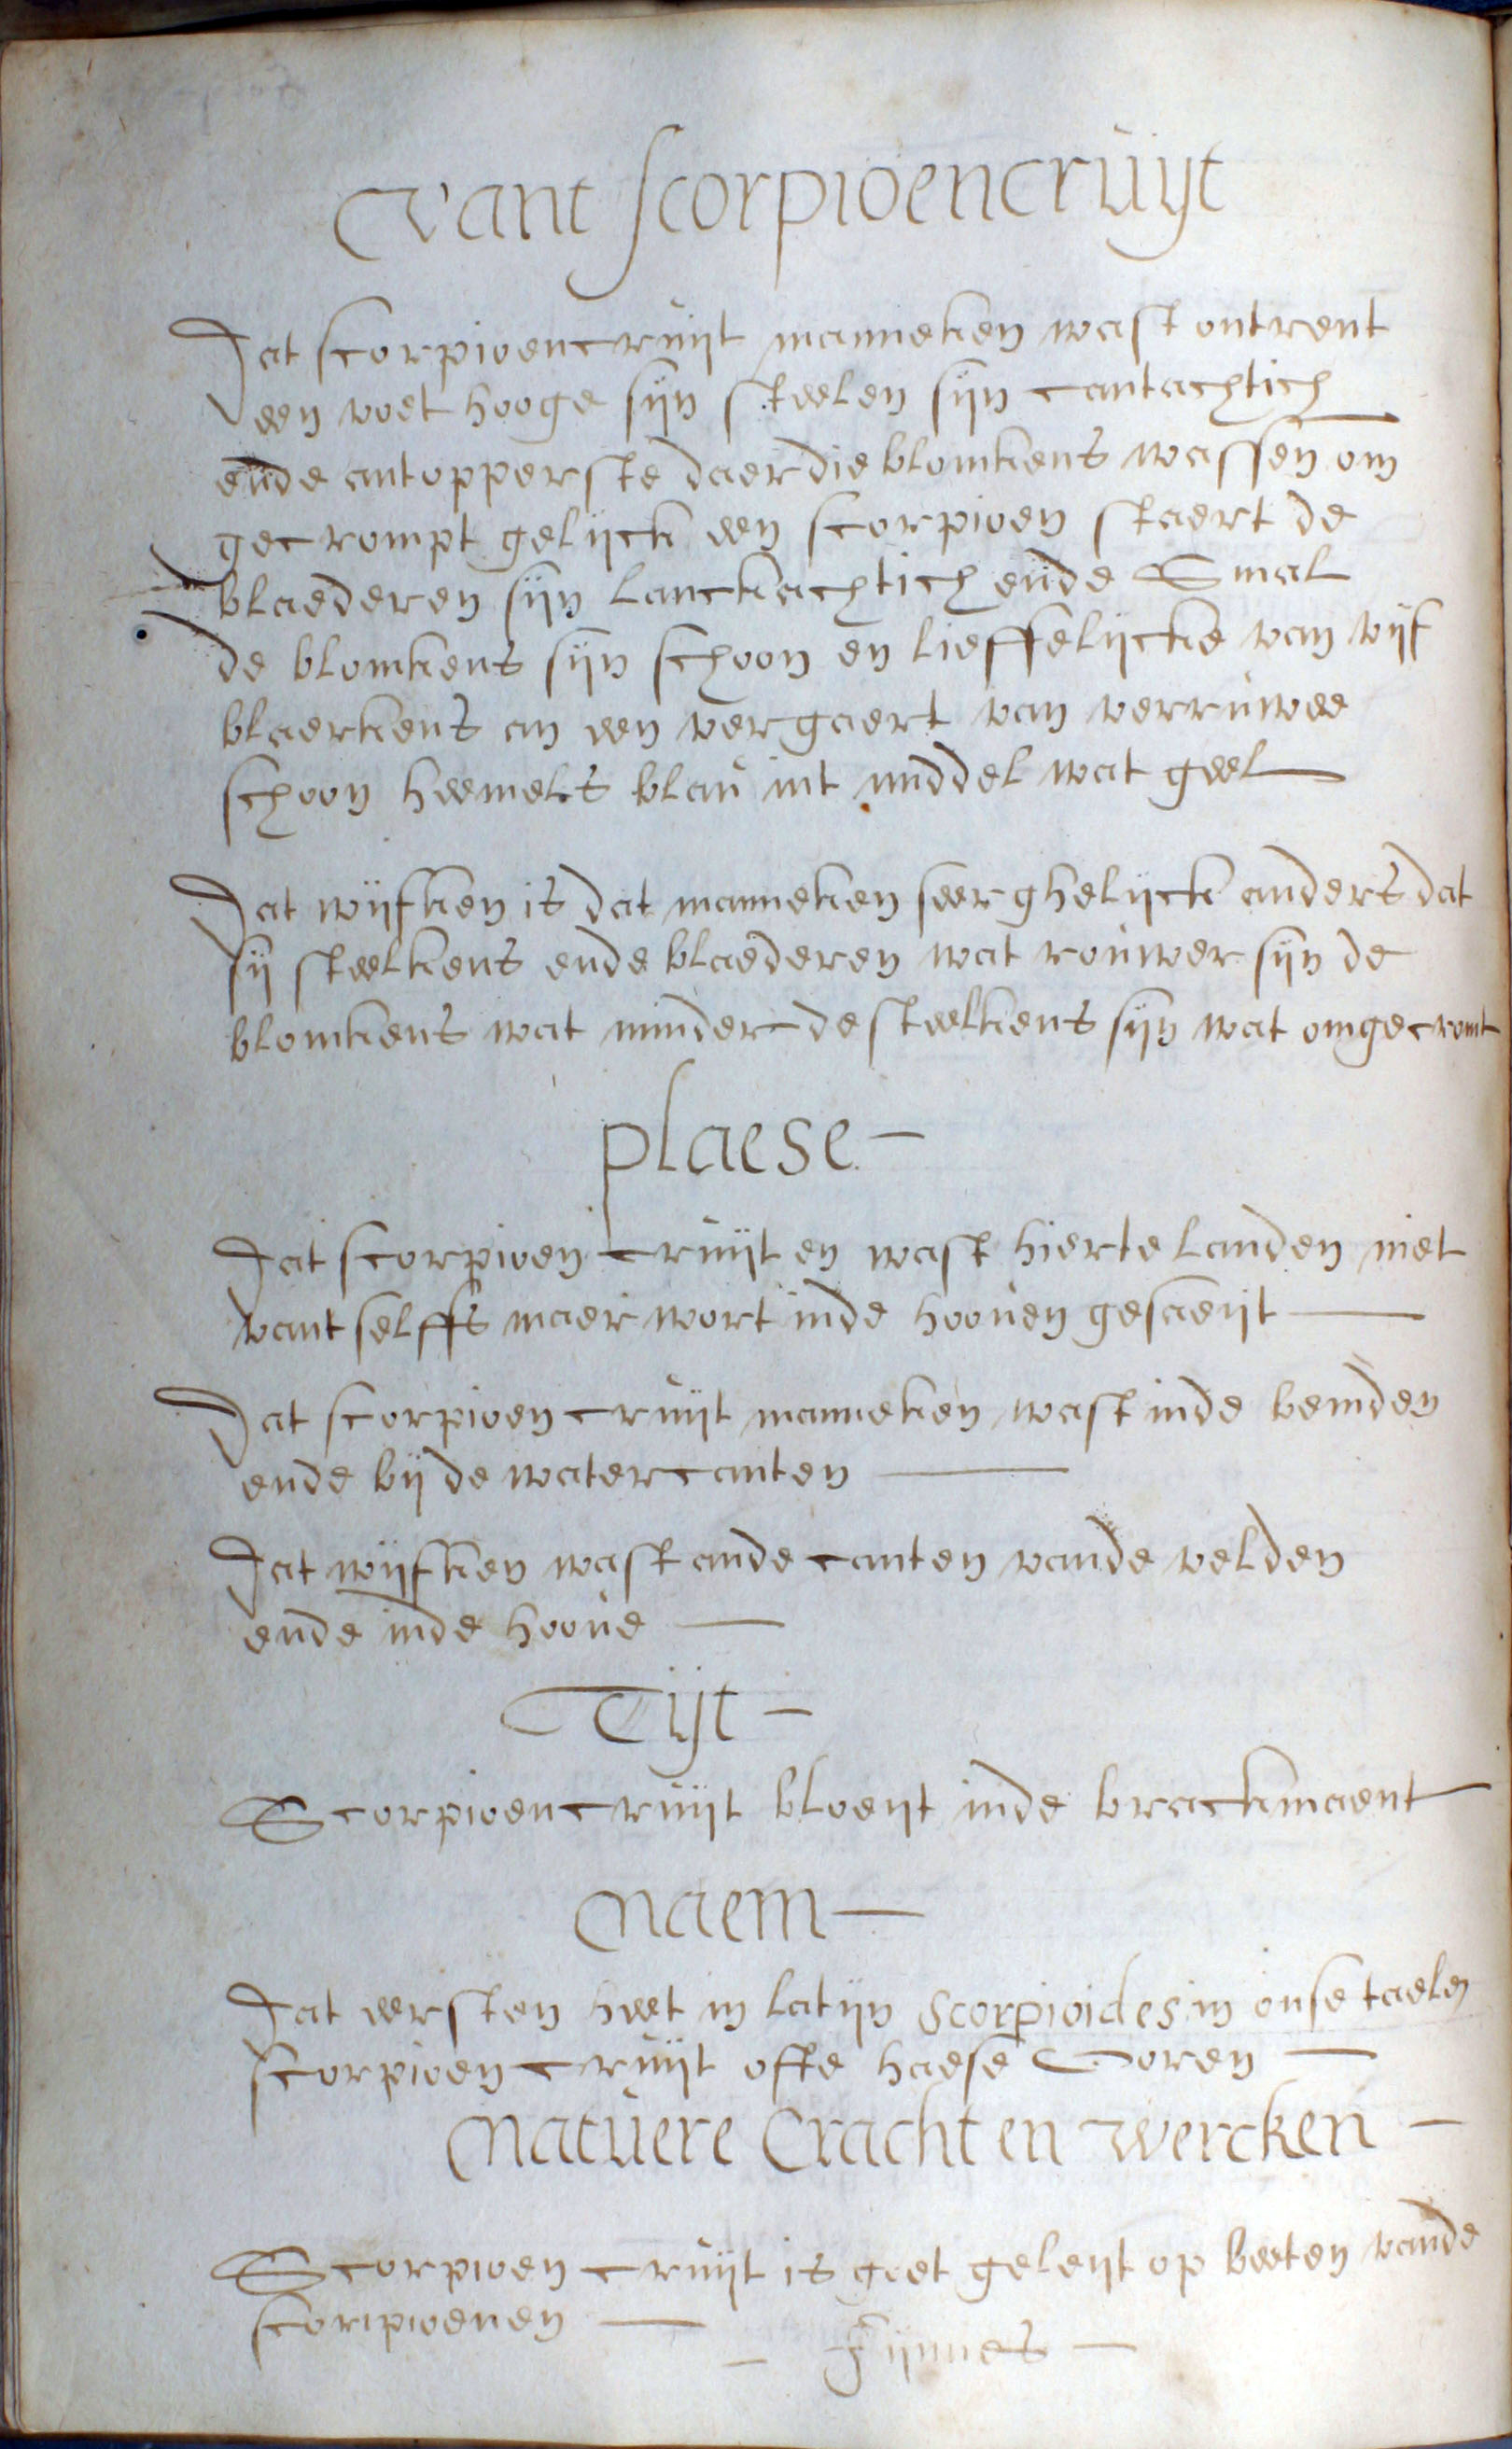 Vant scorpioencruijt
Dat scorpioencruijt manneken wast ontrent
een voet hooge sijn steelen sijn cantachtich
ende ant opperste daer die blomkens wassen om
gecrompt gelijck een scorpioen staert de
blaederen sijn lanckachtich ende Smal
de blomkens sijn schoon en lieffelijcke van vijf
blaerkens an een vergaert van verruwee
schoon heemels blau int middel wat geel
Dat wijfken is dat manneken seer ghelijck anders dat
sij steelkens ende blaederen wat rouwer sijn de
blomkens wat minder de steelkens sijn wat omgecromt
plaese
Dat scorpioen cruijt en wast hier te landen niet
vant selffs maer wort inde hooven gesaeijt
Dat scorpioen cruijt manneken wast inde bemden
ende bij de watercanten
Dat wijfken wast ande canten vande velden
ende inde hoove
Tijt
Scorpioencruijt bloeijt inde brackmaent
Naem
Dat eersten heet in latijn Scorpioides in onse taelen
scorpioen cruijt ofte haese Ooren
Natuere Cracht en wercken
Scorpioen cruijt is goet geleijt op beeten vande
scoripioenen
Fijnnes